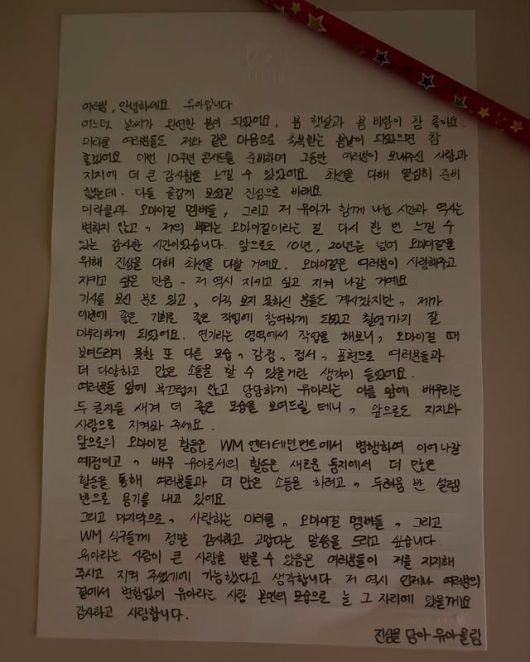 여러분, 안녕하세요 유아입니다
어느덧 날씨가 완연한 봄이 되었어요. 봄 햇살과 봄 바람이 참 좋아요.
미라클 여러분들도 저와 같은 마음으로 축복받는 봄날이 되셨으면 참
좋겠어요 이번 10주년 콘서트를 준비하며 그동안 여러분이 보내주신 사랑과
지지에 더 큰 감사함을 느낄 수 있었어요 최선을 다해 열심히 준비
했는데. 다들 즐겁게 보셨길 진심으로 바래요
미라클과 오마이걸 멤버들, 그리고 저 유아가 함께 나눈 시간과 역사는
변하지 않고, 저의 뿌리는 오마이걸이라는 걸 다시 한 번 느낄 수
있는 감사한 시간이었습니다. 앞으로도 10년, 20년을 넘어 오마이걸을
위해 진심을 다해 최선을 다할 거예요. 오마이걸은 여러분이 사랑해주고
지키고 싶은 만큼 - 저 역시 지키고 싶고 지켜 나갈 거예요
기사를 보신 분도 있고, 아직 보지 못하신 분들도 계시겠지만, 제가
이번에 좋은 기회로 좋은 작업에 참여하게 되었고 촬영까지 잘
마무리하게 되었어요. 연기라는 영역에서 작업을 해보니, 오마이걸 때
보여드리지 못한 또 다른 모습, 감정, 정서, 표현으로 여러분들과
더 다양하고 많은 소통을 할 수 있을거란 생각이 들었어요.
여러분들 앞에 부끄럽지 않고 당당하게 유아라는 이름 앞에 배우라는
두 글자를 새겨 더 좋은 모습을 보여드릴 테니, 앞으로도 지지와
사랑으로 지켜봐 주세요.
앞으로의 오마이걸 활동은 WM 엔터테인먼트에서 병행하여 이어 나갈
예정이고, 배우 유아로서의 활동은 새로운 둥지에서 더 많은
활동을 통해 여러분들과 더 많은 소통을 하려고, 두려움 반 설렘
반으로 용기를 내고 있어요
그리고 마지막으로, 사랑하는 미라클, 오마이걸 멤버들, 그리고
WM 식구들께 정말 감사하고 고맙다는 말씀을 드리고 싶습니다.
유아라는 사람이 큰 사랑을 받을 수 있음은 여러분들이 저를 지지해
주시고 지켜 주셨기에 가능했다고 생각합니다. 저 역시 언제나 여러분의
곁에서 변함없이 유아라는 사람 본연의 모습으로 늘 그 자리에 있을게요
감사하고 사랑합니다.
진심을 담아 유아올림